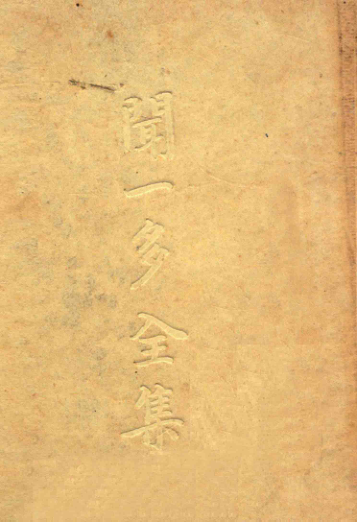 聞一多全集